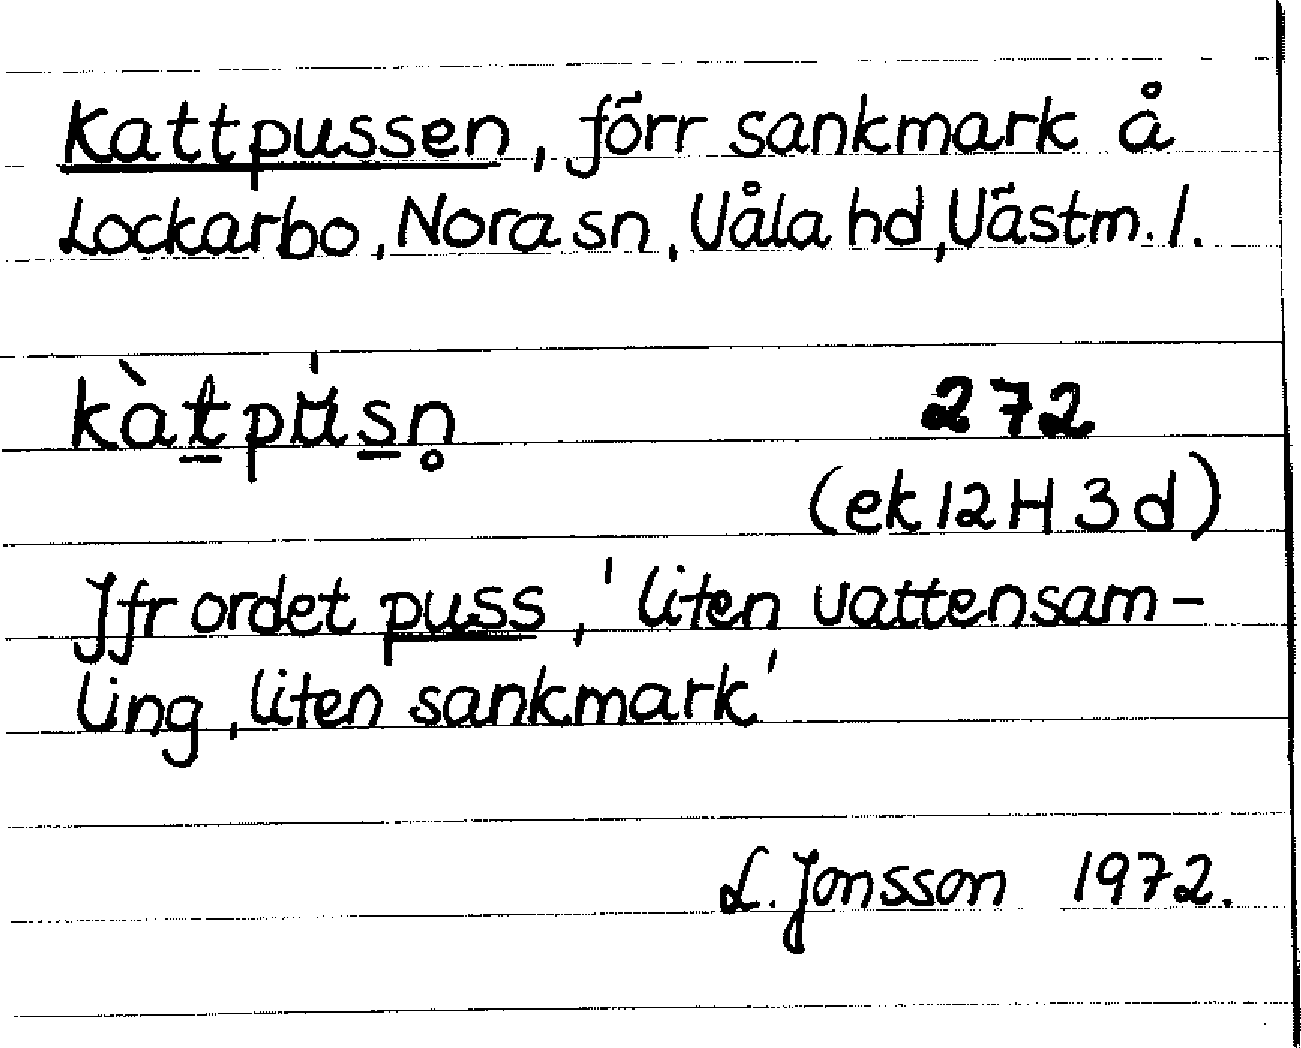 Kattpussen, förr sankmark å
Lockarbo, Nora sn, Våla hd, Västm. l.
kàt̲pu̍s̲n̥
272
(ek 12 H 3 d)
Jfr ordet puss, 'liten vattensam-
ling, liten sankmark'
L. Jonsson 1972.